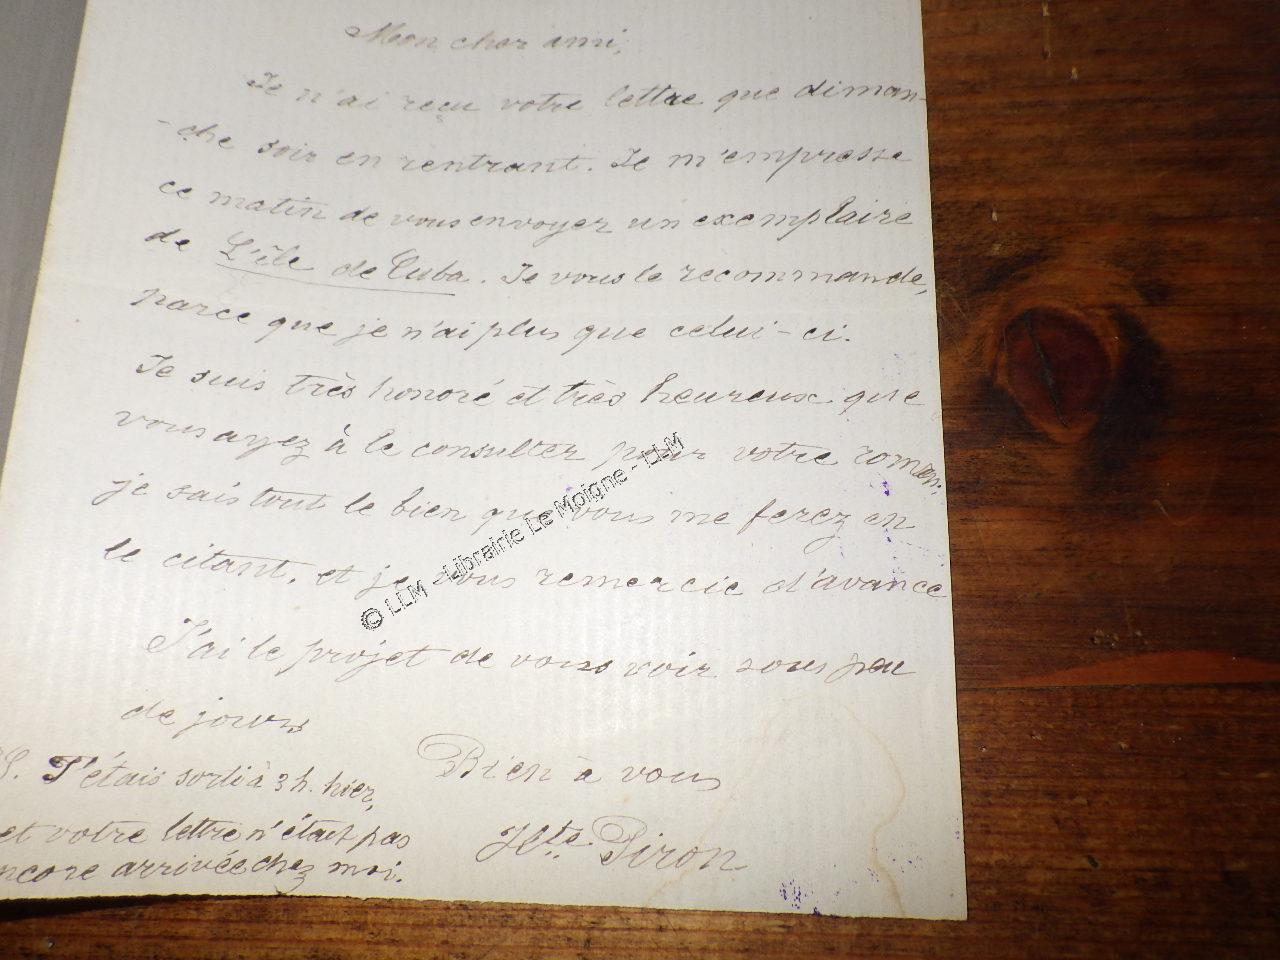 Mon cher ami,
Je n'ai reçu votre lettre que diman-
-che soir en rentrant. Je m'empresse
ce matin de vous envoyer un exemplaire
de L'île de Cuba. Je vous le recommande,
parce que je n'ai plus que celui-ci.
Je suis très honoré et très heureux que
vous ayez à le consulter pour votre roman:
je sais tout le bien que vous me ferez en
le citant, et je vous remercie d'avance
J'ai le projet de vous voir sous peu
de jours
Bien à vous
Hte Piron
PS. J'étais sorti à 3 h. hier,
et votre lettre n'était pas
encore arrivée chez moi.
© LLM - Librairie Le Moigne - LLM